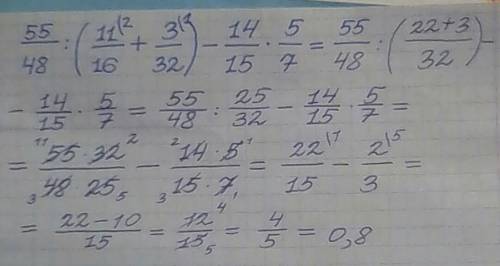 55/48 : (11\2/16 + 3\1/32) − 14/15 · 5/7 = 55/48 : (22+3/32) −
− 14/15 · 5/7 = 55/48 : 25/32 − 14/15 · 5/7 =
= 11 55 · 32 2/3 48 · 25 5 − 2 14 · 5 1/3 15 · 7 1 = 22\1/15 − 2\5/3 =
= 22−10/15 = 12 4/15 5 = 4/5 = 0,8